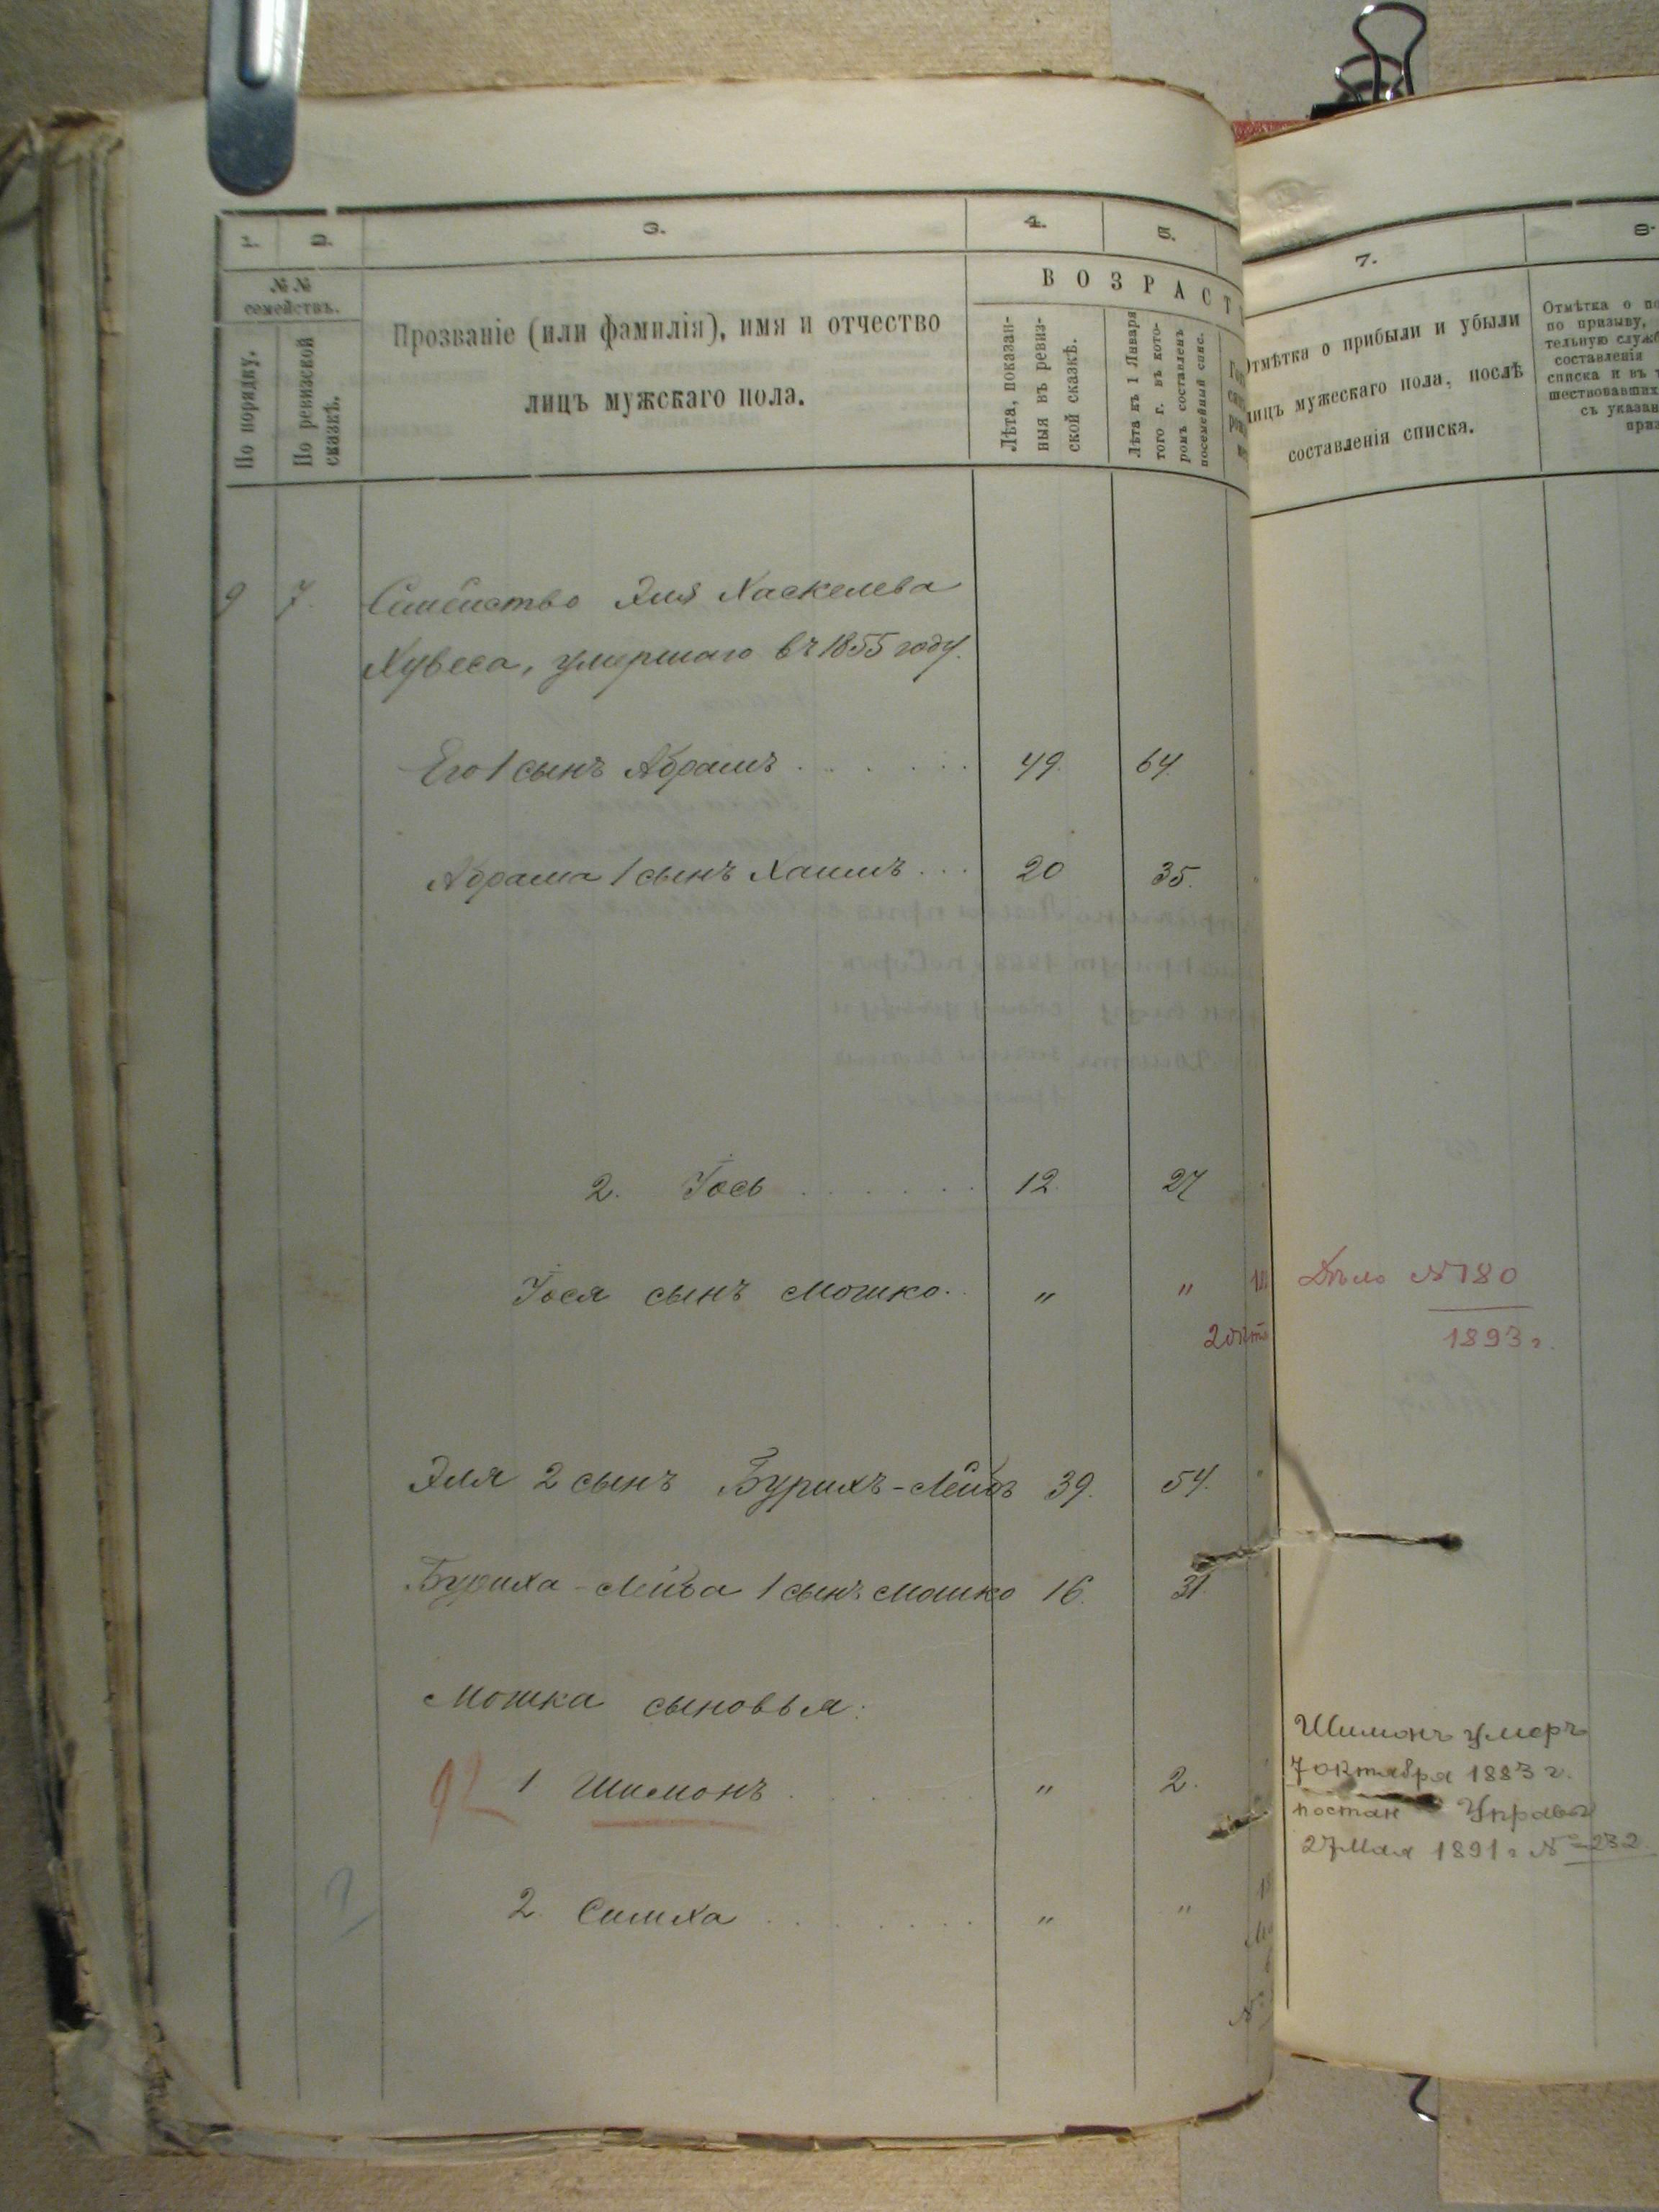 1.
2.
3.
4.
5.
№№
семействъ.
По порядку.
По ревизской
сказкѣ.
Прозваніе (или фамилія), имя и отчество
лицъ мужскаго пола.
ВОЗРАСТ
Лѣта, показан-
ныя въ ревиз-
ской сказкѣ.
Лѣта къ 1 Января
того г. въ кото-
ромъ составленъ
посемейный спис.
9 7. Семейство Эля Хаскелева
Хувеса, умершаго въ 1855 году.
Его 1 сынъ Абрамъ . . . . . . 49. 64.
Абрама 1 сынъ Хаимъ . . . 20 35.
2. Іось . . . . . . . 12. 27
Іося сынъ Мошко. . " "
2 окт
Эля 2 сынъ Бурихъ-Лейбъ 39. 54.
Буриха-Лейба 1 сынъ Мошко 16. 31.
Мошка сыновья:
92 1 Шимонъ . . . . . . . " 2.
2. Симха . . . . . . . . " "
7.
8.
Отмѣтка о прибыли и убыли
лицъ мужескаго пола, послѣ
составленія списка.
Отмѣтка о по
по призыву,
тельную служб
составленія
списка и въ
шествовавших
съ указан
приз
Дѣло №180
1893 г.
Шимонъ умеръ
7 октября 1883 г.
постан Управы
27 Мая 1891 г №232.